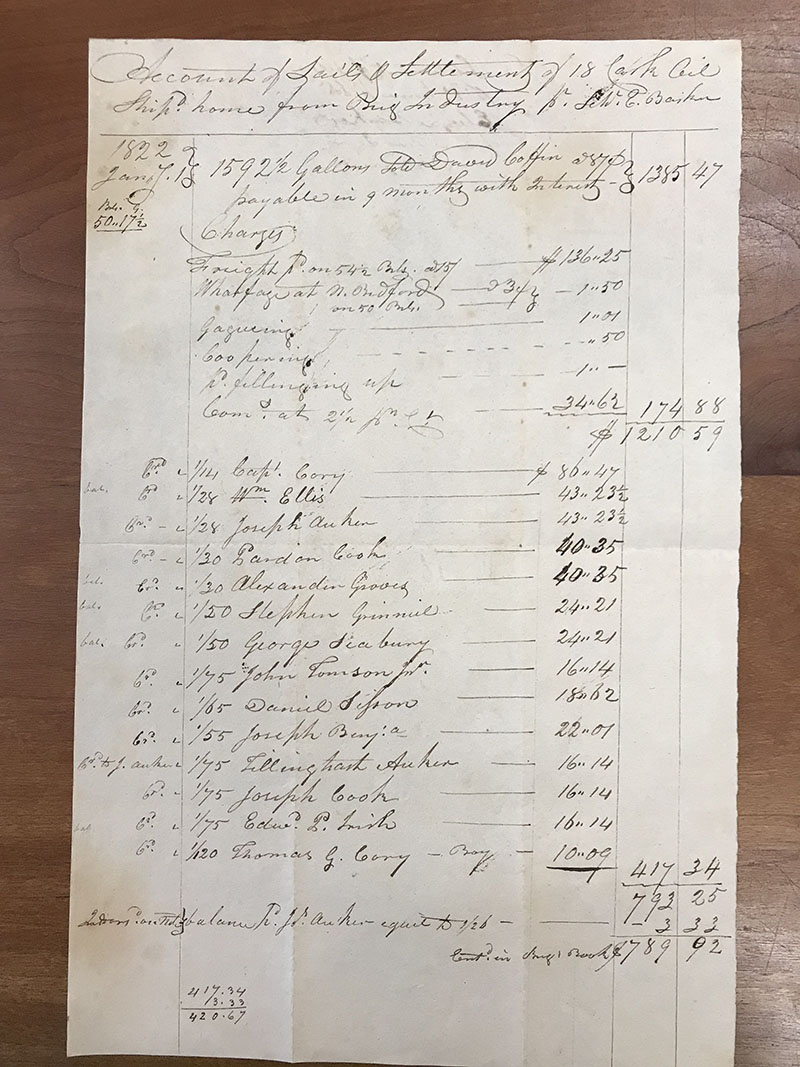 Account of Sails & Settlement of 18 Cask Oil
Ship.d home from Brig Industry pr. Sch.r E. Barker
1822
Jany. 18 } 1592 1/2 Gallons Sold David Coffin @ 87¢ } 1385 47
payable in 9 months with Interest
Bls. G.
50"17 1/2
Charges
Freight pd. on 54 1/2 Bls. @ $ 136"25
Wharfage at N. Bedford @ 3¢ } 1"50
on 50 Bls.
Gagueing 1"01
Coopering "50
pd. fillinging up 1"-
Com.s at 2 1/2 pr. Ct 34"62 174 88
$ 1210 59
Crd " 1/14 Capt. Cory $ 86"47
bal. Crd " 1/28 Wm. Ellis 43"23 1/2
Crd - " 1/28 Joseph Auker 43"23 1/2
Crd - " 1/30 Pardon Cook 40"35
bal. Cr. " 1/30 Alexander Groves 40"35
bal. Cr. " 1/50 Stephen Grinniel 24"21
bal. Crd. " 1/50 George Seabury 24"21
Crd. " 1/75 John Tomson Jr. 16"14
Crd. " 1/65 Daniel Sisson 18"62
Crd. " 1/55 Joseph Benj.a 22"01
Crd to J. Auker " 1/75 Tillinghast Auker 16"14
Crd. " 1/75 Joseph Cook 16"14
bal Crd " 1/75 Edwd. P. Irish 16"14
Crd " 1/120 Thomas G. Cory - Boy 10"09 417 34
793 25
balance pd. Js. Auker equel to - 3 33
Entd. in Brigs Book $ 789 92
417.34
3.33
420.67